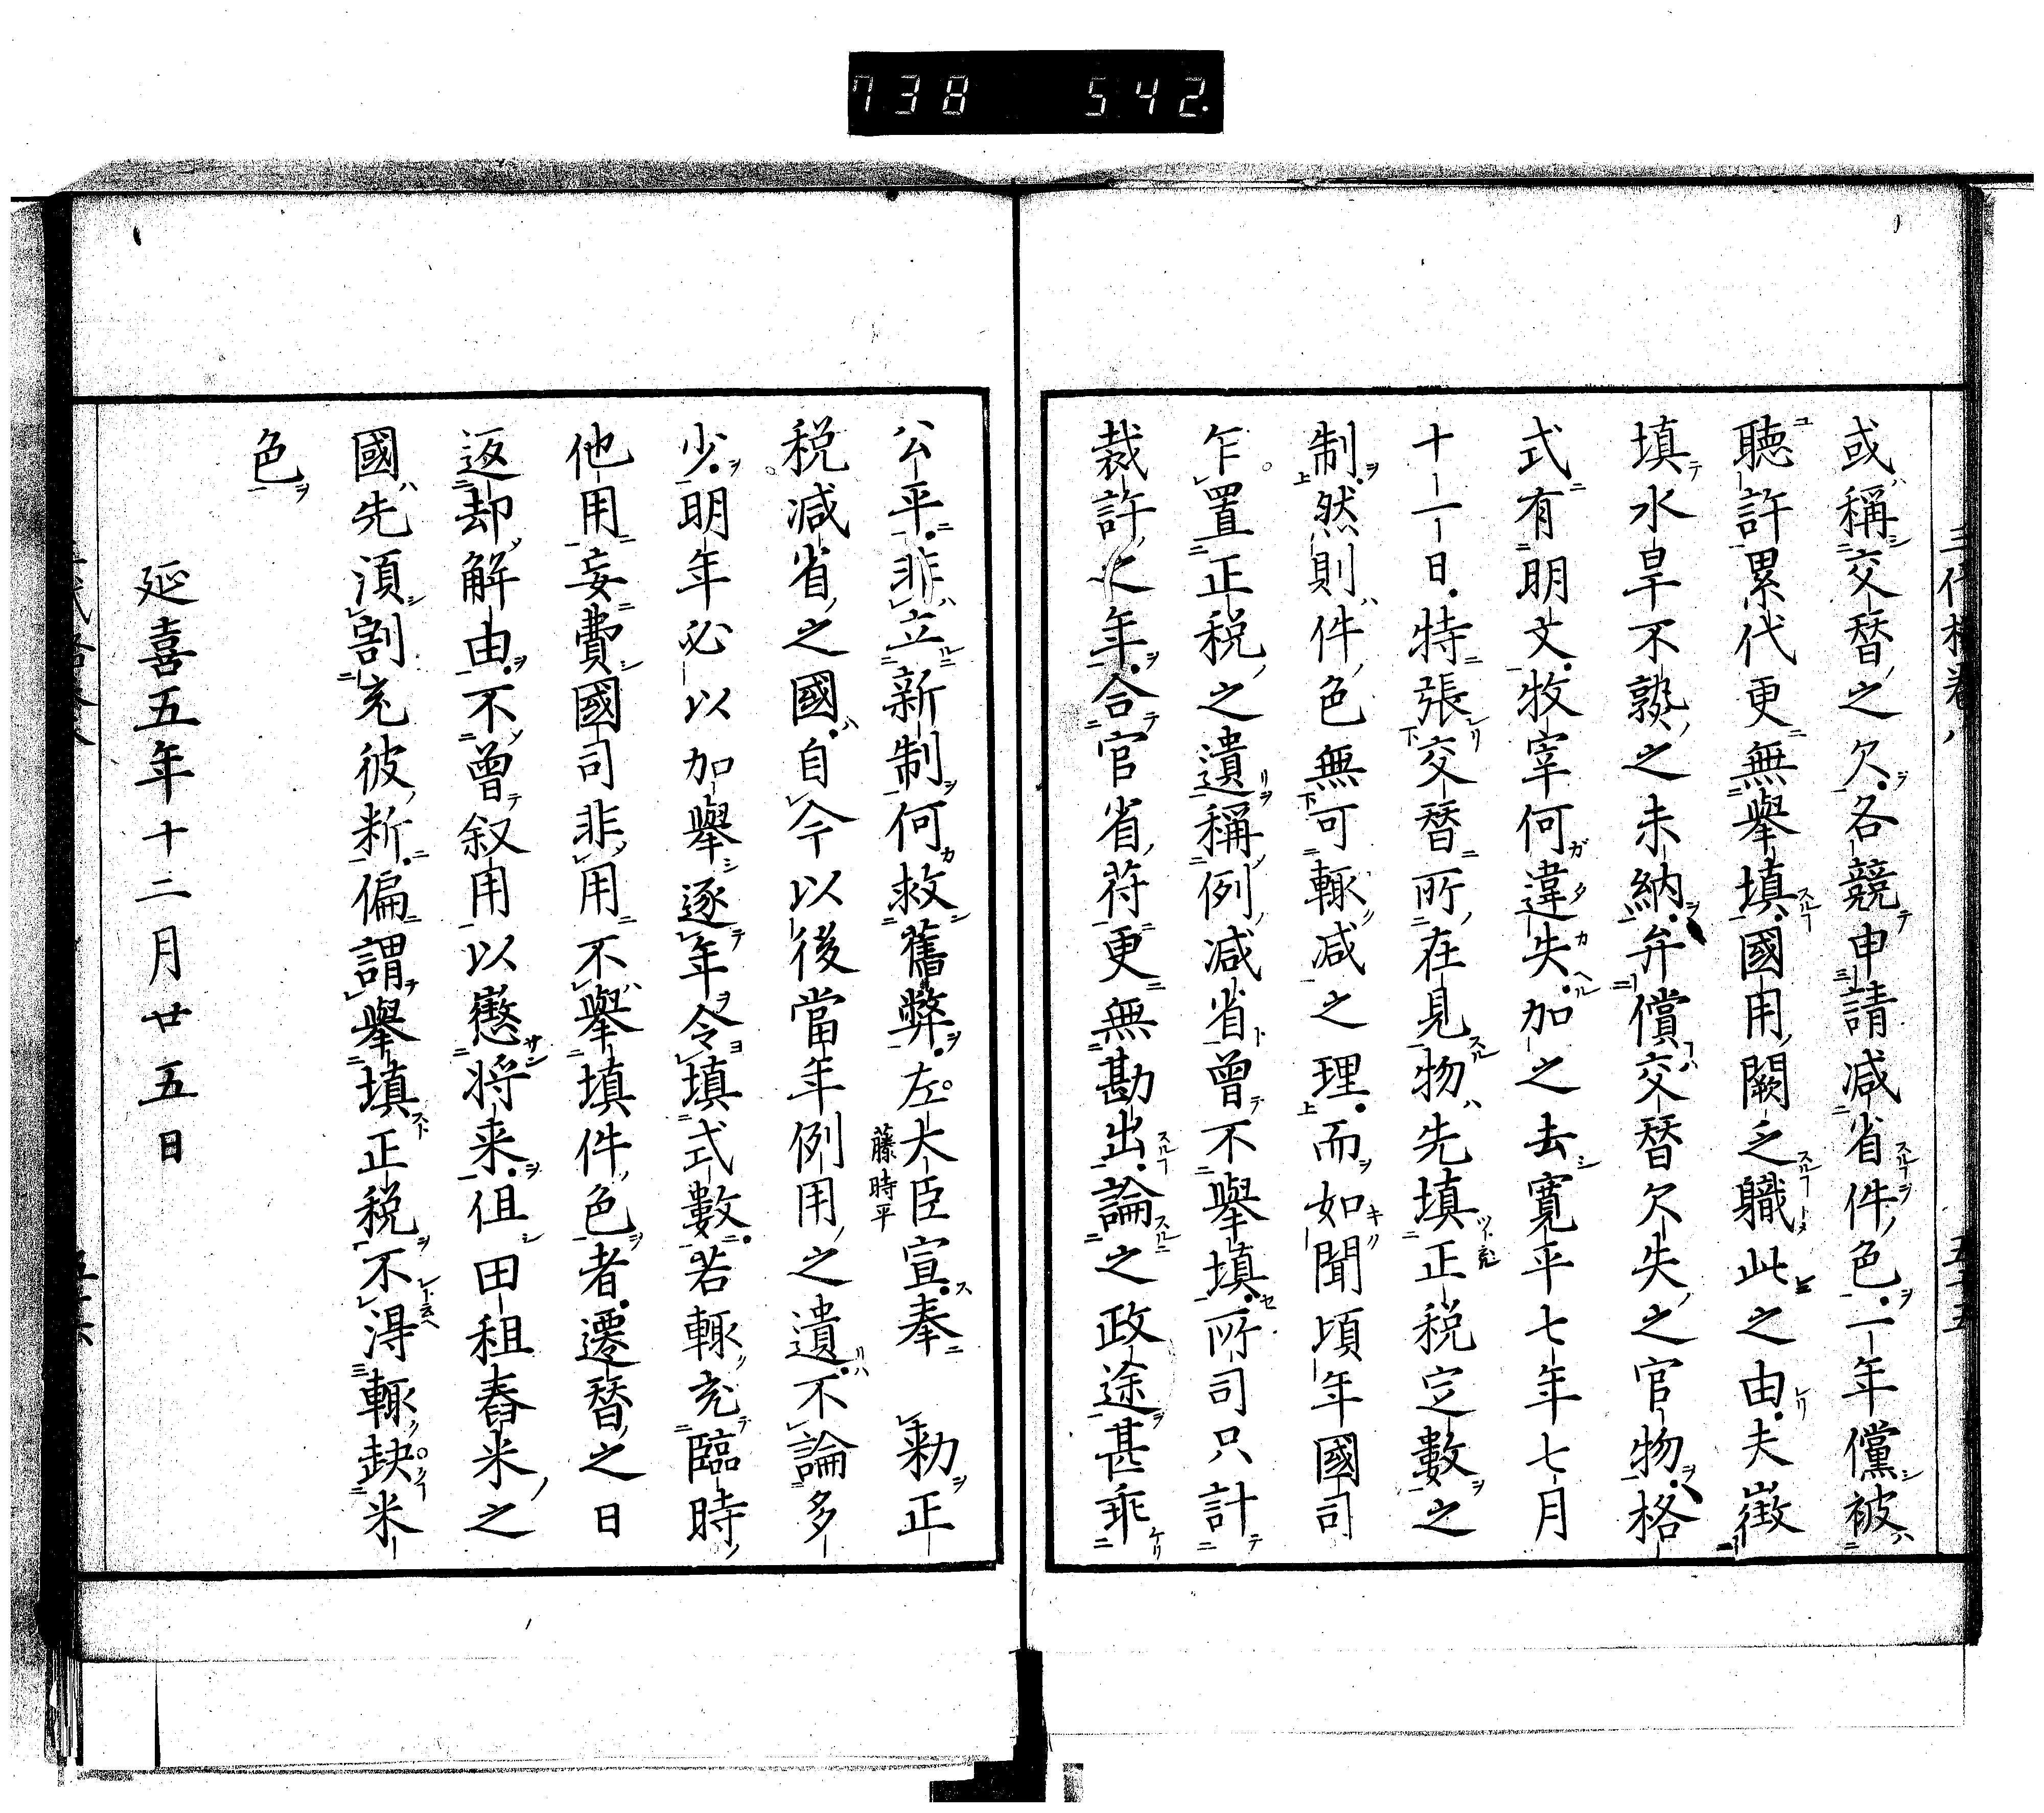 738 542
或稱交替之欠各競申請减省件色一年儻被
聽許累代更無擧填國用闕乏職此之由夫徴
填水旱不熟之未納弁償交替欠失之官物格
式有明文牧宰何違失加之去寛平七年七月
十一日特張交替所在見物先填正税定數之
制然則件色無可輙减之理而如聞頃年國司
乍置正税之遺稱例减省曽不擧填所司只計
裁許之年合官省符更無勘出論之政途甚乖
公平非立新制何救舊弊左大臣宣奉　勅正
藤時平
税减省之國自今以後當年例用之遺不論多
少明年必以加擧逐年令填式數若輙充臨時
他用妄費國司非用不擧填件色者遷替之日
返却解由不曾叙用以懲将来但田租舂米之
國先湏割充彼断偏謂擧填正税不淂輙缺米
色
延喜五年十二月廿五日